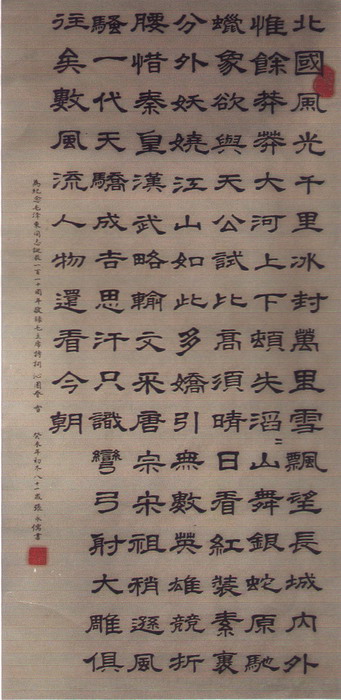 北國風光千里冰封萬里雪飄望長城內外
惟餘莽莽大河上下頓失滔〻山舞銀蛇原馳
蠟象欲與天公試比高須晴日看紅裝素裹
分外妖嬈江山如此多嬌引無數英雄競折
腰惜秦皇漢武略輸文采唐宗宋祖稍遜風
騷一代天驕成吉思汗只識彎弓射大雕俱
往矣數風流人物還看今朝
為紀念毛澤東同志誕辰一百一十周年敬錄毛主席詩詞沁園春 雪 癸未年初冬八十一歲張永儒書